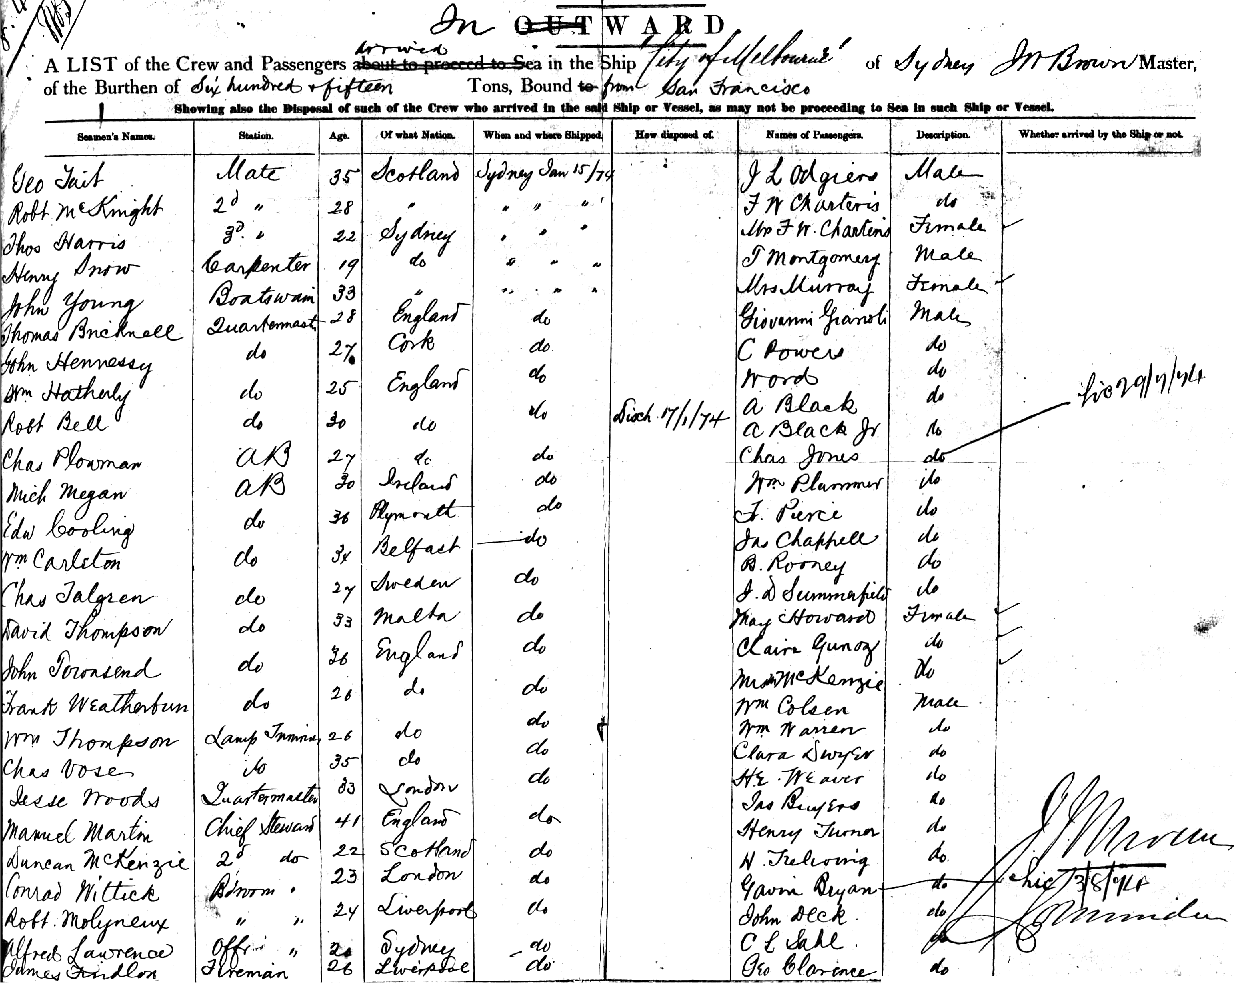 In OUTWARD
A LIST of the Crew and Passengers arrived about to proceed to Sea in the Ship "City of Melbourne" of Sydney Jn Brown Master,
of the Burthen of Six hundred & fifteen Tons, Bound to from San Francisco
Showing also the Disposal of such of the Crew who arrived in the said Ship or Vessel, as may not be proceeding to Sea in such Ship or Vessel.
Seamen's Names. Station. Age. Of what Nation. When and where Shipped. How disposed of. Names of Passengers. Description. Whether arrived by the Ship or not.
Geo Tait Mate 35 Scotland Sydney Jan 15/74 J L Odgiers Male
Robt McKnight 2d " 28 " " " " F W Charteris do
Thos Harris 3d " 22 Sydney " " " Mrs F. W. Charteris Female
Henry Snow Carpenter 19 do " " " T Montgomery Male
John Young Boatswain 33 " " " " Mrs Murray Female
Thomas Bricknell Quartermast 28 England do Giovanni Gianoli Male
John Hennessy do 27 Cork do C Powers do
Wm Hatherly do 25 England do Word do
Robt Bell do 30 do do Disch 17/1/74 A Black do
A Black Jr do
Chas Plowman AB 27 do do Chas Jones do
Mich Megan AB 30 Ireland do Wm Plummer do
Edw Cooling do 36 Plymouth do F. Pierce do
Wm Carlston do 34 Belfast do Jas Chappell do
B. Rooney do
Chas Talgren do 27 Sweden do J. D Summerfield do
David Thompson do 33 Malta do May Howard Female
John Townsend do 36 England do Claire Gunoz do
Frank Weatherburn do 26 do do Mrs McKenzie do
Wm Colsen Male
Wm Thompson Lamp Trimmer 26 do do Wm Warren do
Chas Vose do 35 do do Clara Dwyer do
Jesse Woods Quartermaster 33 London do H.E. Weaver do
Jas Buyers do
Manuel Martin Chief Steward 41 England do Henry Turner do
Duncan McKenzie 2d do 22 Scotland do H. Treloving do
Conrad Wittick Bdroom " 23 London do Gavin Bryan do
Robt. Molyneux " " 24 Liverpool do John Deck do
Alfred Lawrence Offi " Sydney do C L Sahl do
James Findlon Fireman 26 Liverpool do Geo Clarence do